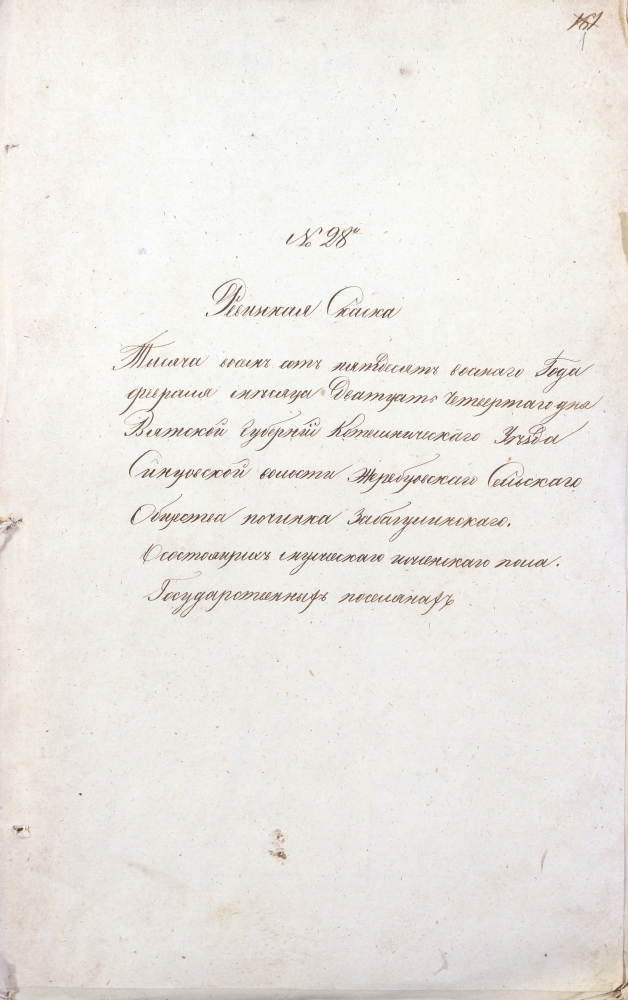 161
№ 28й
Ревизская Сказка
Тысяча восемь сотъ пятьдесятъ восмаго Года
февраля мѣсяца Дватцать Четвертаго дня
Вятской Губерніи Котельническаго Уѣзда
Синцовской волости Жребцовскаго Сельскаго
Общества починка Забагулинскаго.
О состоящихъ мужескаго и женскаго пола.
Государственныхъ поселянахъ